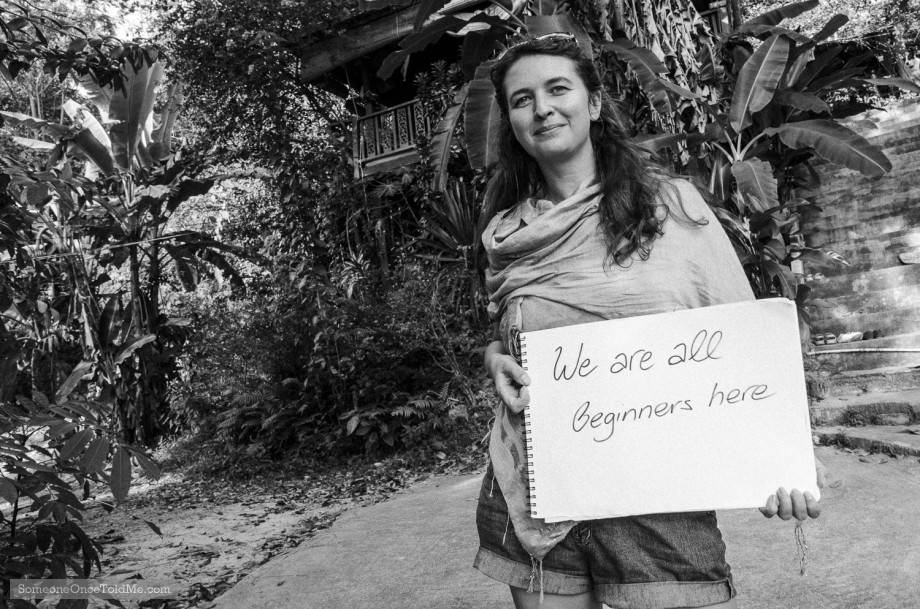 We are all
Beginners here
SomeoneOnceToldMe.com